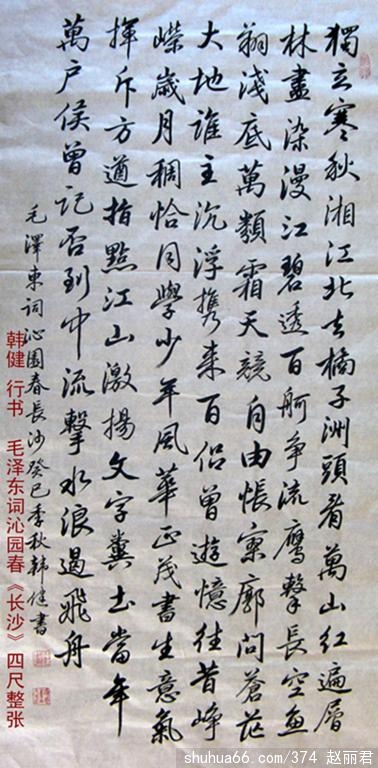 獨立寒秋湘江北去橘子洲頭看萬山红遍層
林盡染漫江碧透百舸争流鹰擊長空魚
翔淺底萬類霜天競自由悵寥廓問蒼茫
大地誰主沉浮携来百侣曾遊憶往昔峥
嶸歲月稠恰同學少年風華正茂書生意氣
揮斥方遒指點江山激揚文字糞土當年
萬户侯曾记否到中流擊水浪遏飛舟
毛澤東詞沁園春長沙癸巳季秋韩健書
韩健 行书 毛泽东词沁园春《长沙》四尺整张
shuhua66.com/374 赵丽君